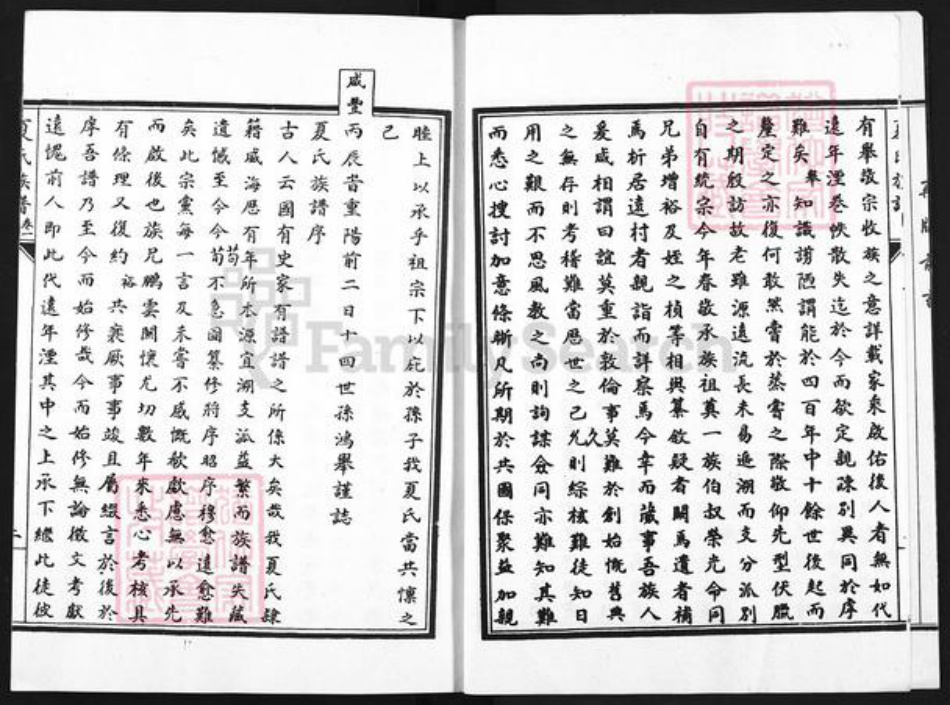 有舉敬宗收族之意詳載家乘啟佑後人者無如代
遠年湮卷帙散失迄於今而欲定親疎別異同於序
難矣舉知識謭陋謂能於四百年中十餘世後起而
釐定之亦復何敢然嘗於蒸嘗之際敬仰先型伏臘
之期殷訪故老雖源遠流長未易遡溯而支分派別
自有統宗今年春敬承族祖其一族伯叔榮光命同
兄弟增裕及姪之楨等相與纂敘疑者闕焉遺者補
焉析居遠村者親詣而詳察焉今幸而蕆事吾族人
爰咸相謂曰誼莫重於敦倫事莫難於創始慨舊典
之無存則考稽難當歷世之已久則綜核難徒知日
用之艱而不思風教之尚則詢謀僉同亦難知其難
而悉心搜討加意條晰凡所期於共國保聚益加親
睦上以承乎祖宗下以庇於孫子我夏氏當共懍之
已
咸豐丙辰嘗重陽前二日十四世孫鴻舉謹誌
夏氏族譜序
古人云國有史家有譜譜之所係大矣哉我夏氏肆
籍威海歷有年所本源宜溯支派益繁而族譜失蔵
遺憾至今今苟不急圖纂修將序昭序穆愈遠愈難
矣此宗黨每一言及未嘗不感慨欷歔慮無以承先
而啟後也族兄鵬雲關懷尤切數年來悉心考核具
有條理又復約裕共襄厥事事竣且屬綴言於後於
序吾譜乃至今而始修哉今而始修無論徵文考獻
遠愧前人即此代遠年湮其中之上承下繼此徒彼
夏氏族譜卷一
二
FamilySearch